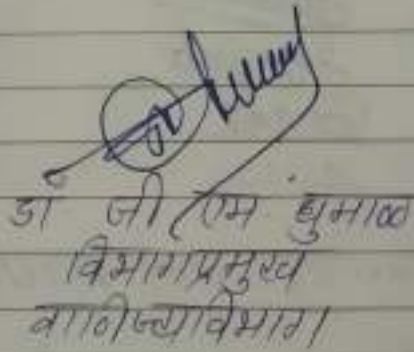 डॉ जी एम धुमाळ
विभागप्रमुख
वाणिज्यविभाग